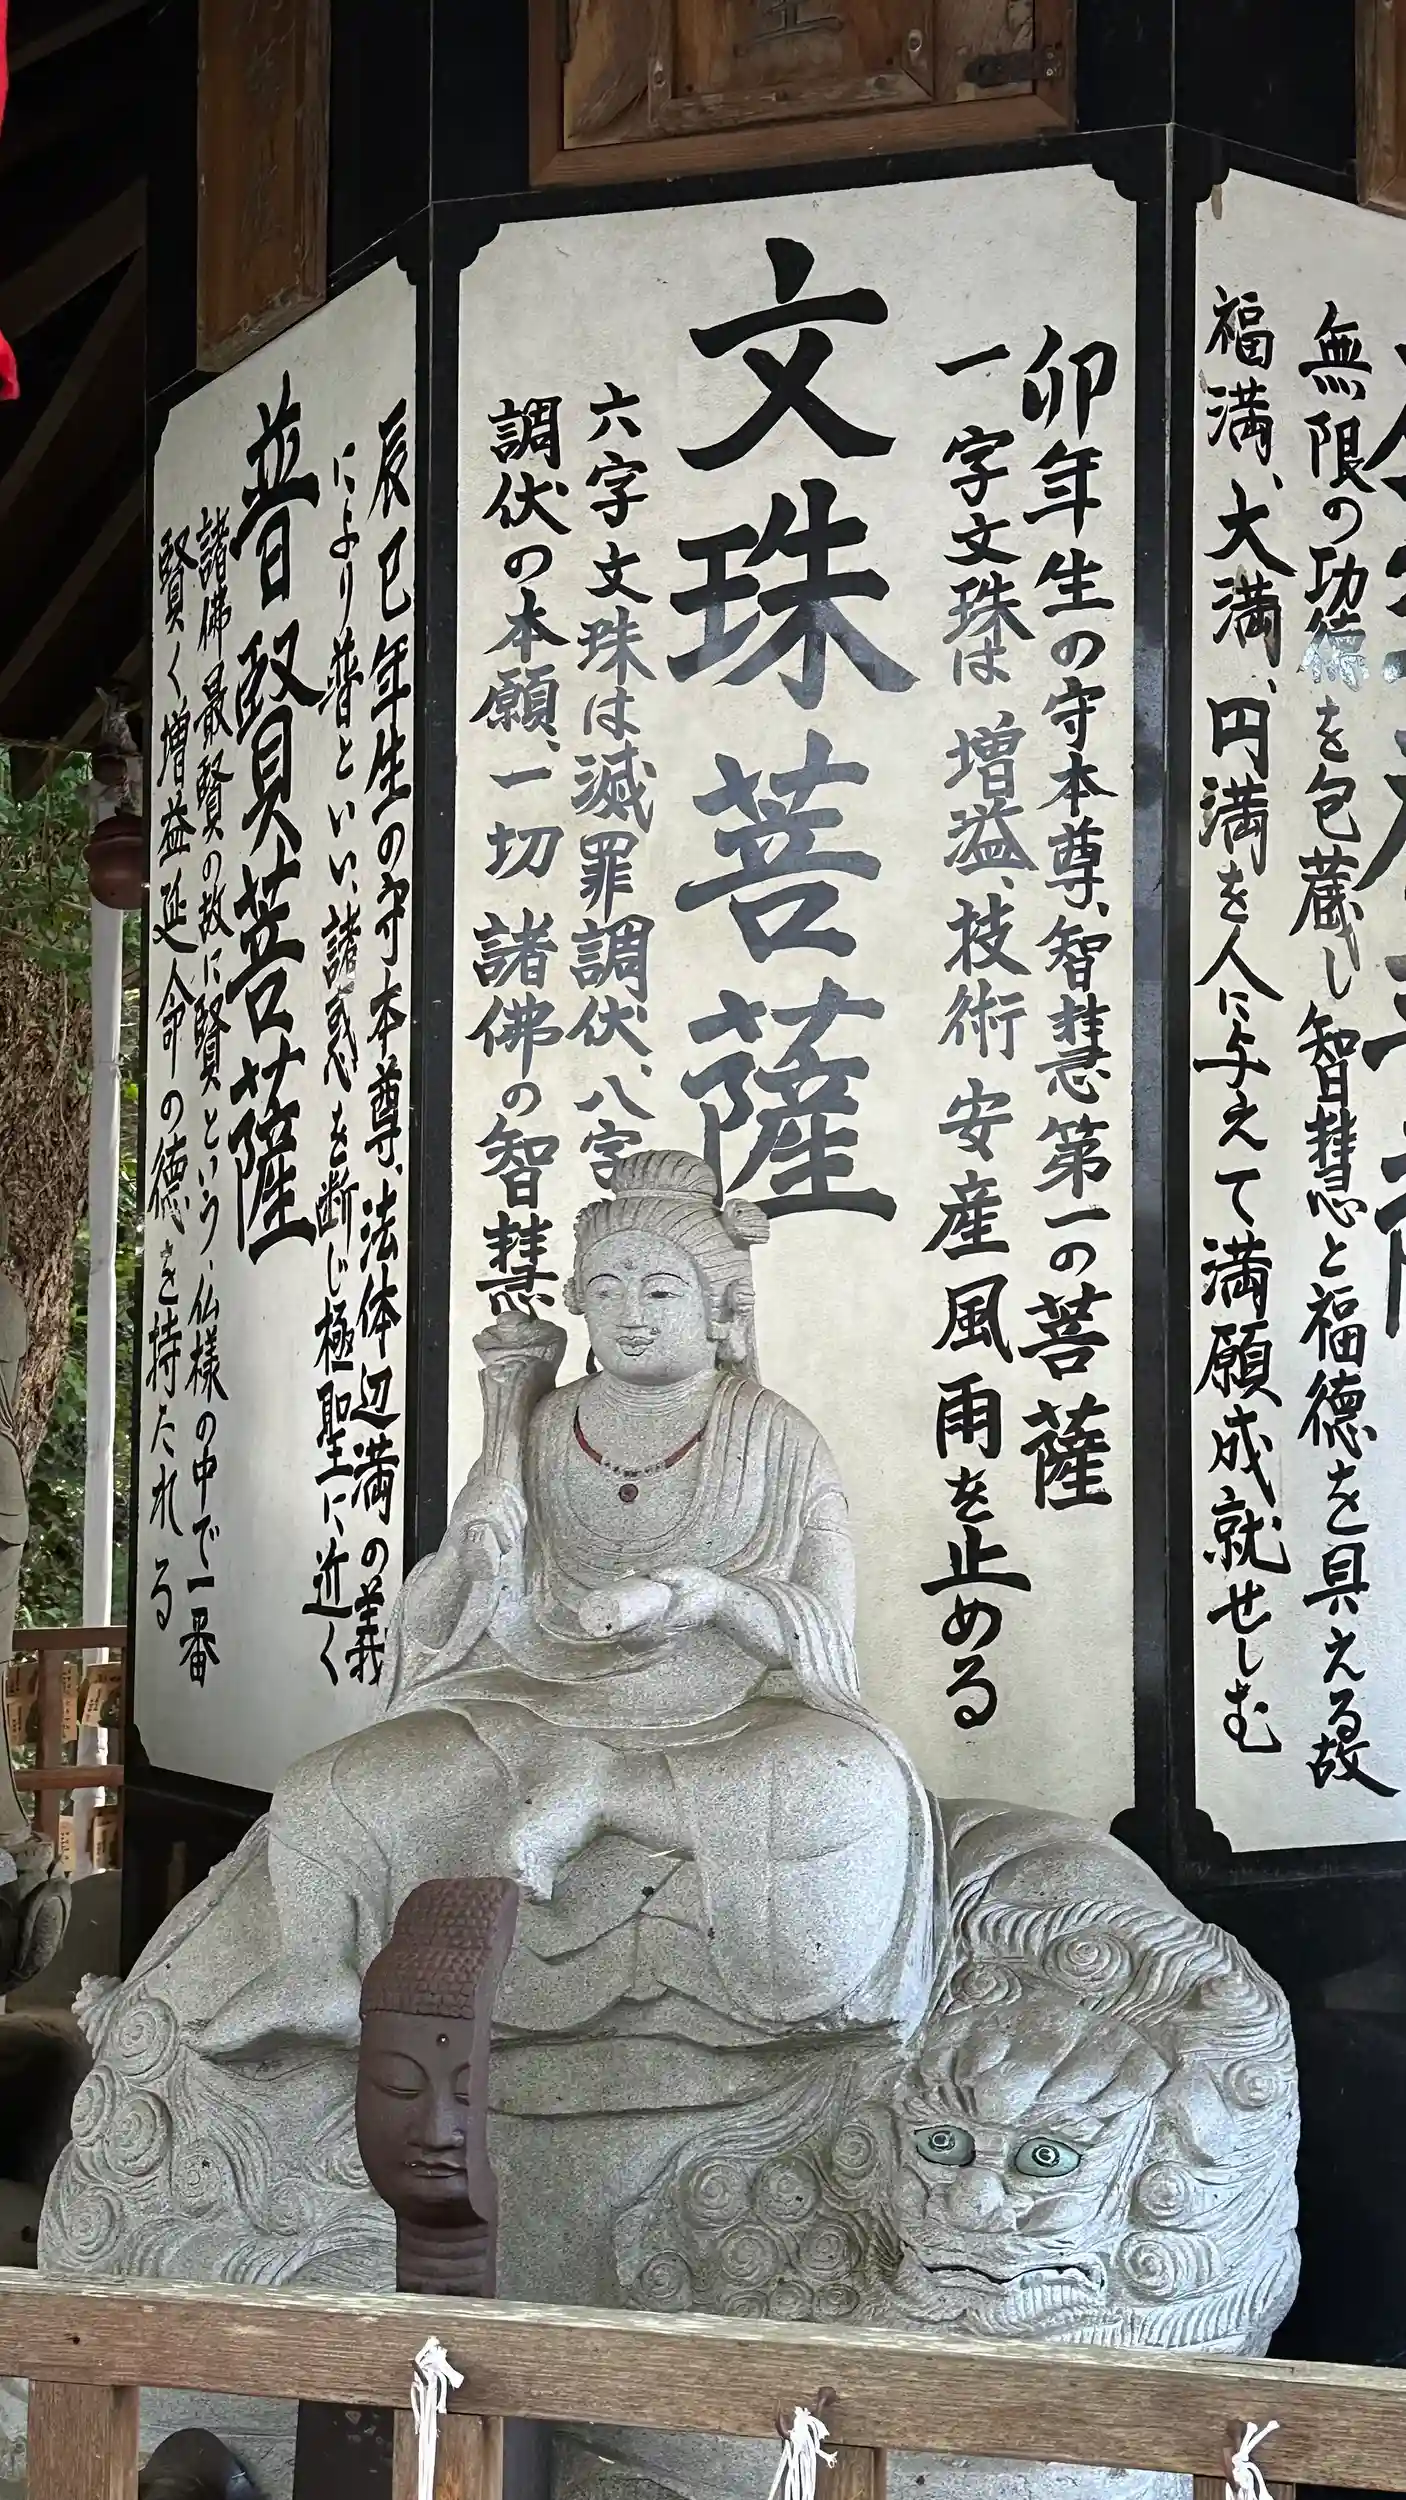 無限の功徳を包蔵し智慧と福徳を具える故
福満、大満、円満を人に与えて満願成就せしむ
卯年生の守本尊、智慧第一の菩薩
一字文珠は増益、技術安産風雨を止める
文珠菩薩
六字文珠は滅罪調伏、八字
調伏の本願、一切諸佛の智慧
辰巳年生の守本尊、法体辺満の義
により普といい、諸惑を断じ極聖に近く
普賢菩薩
諸佛最賢の故に賢という、仏様の中で一番
賢く増益延命の徳を持たれる